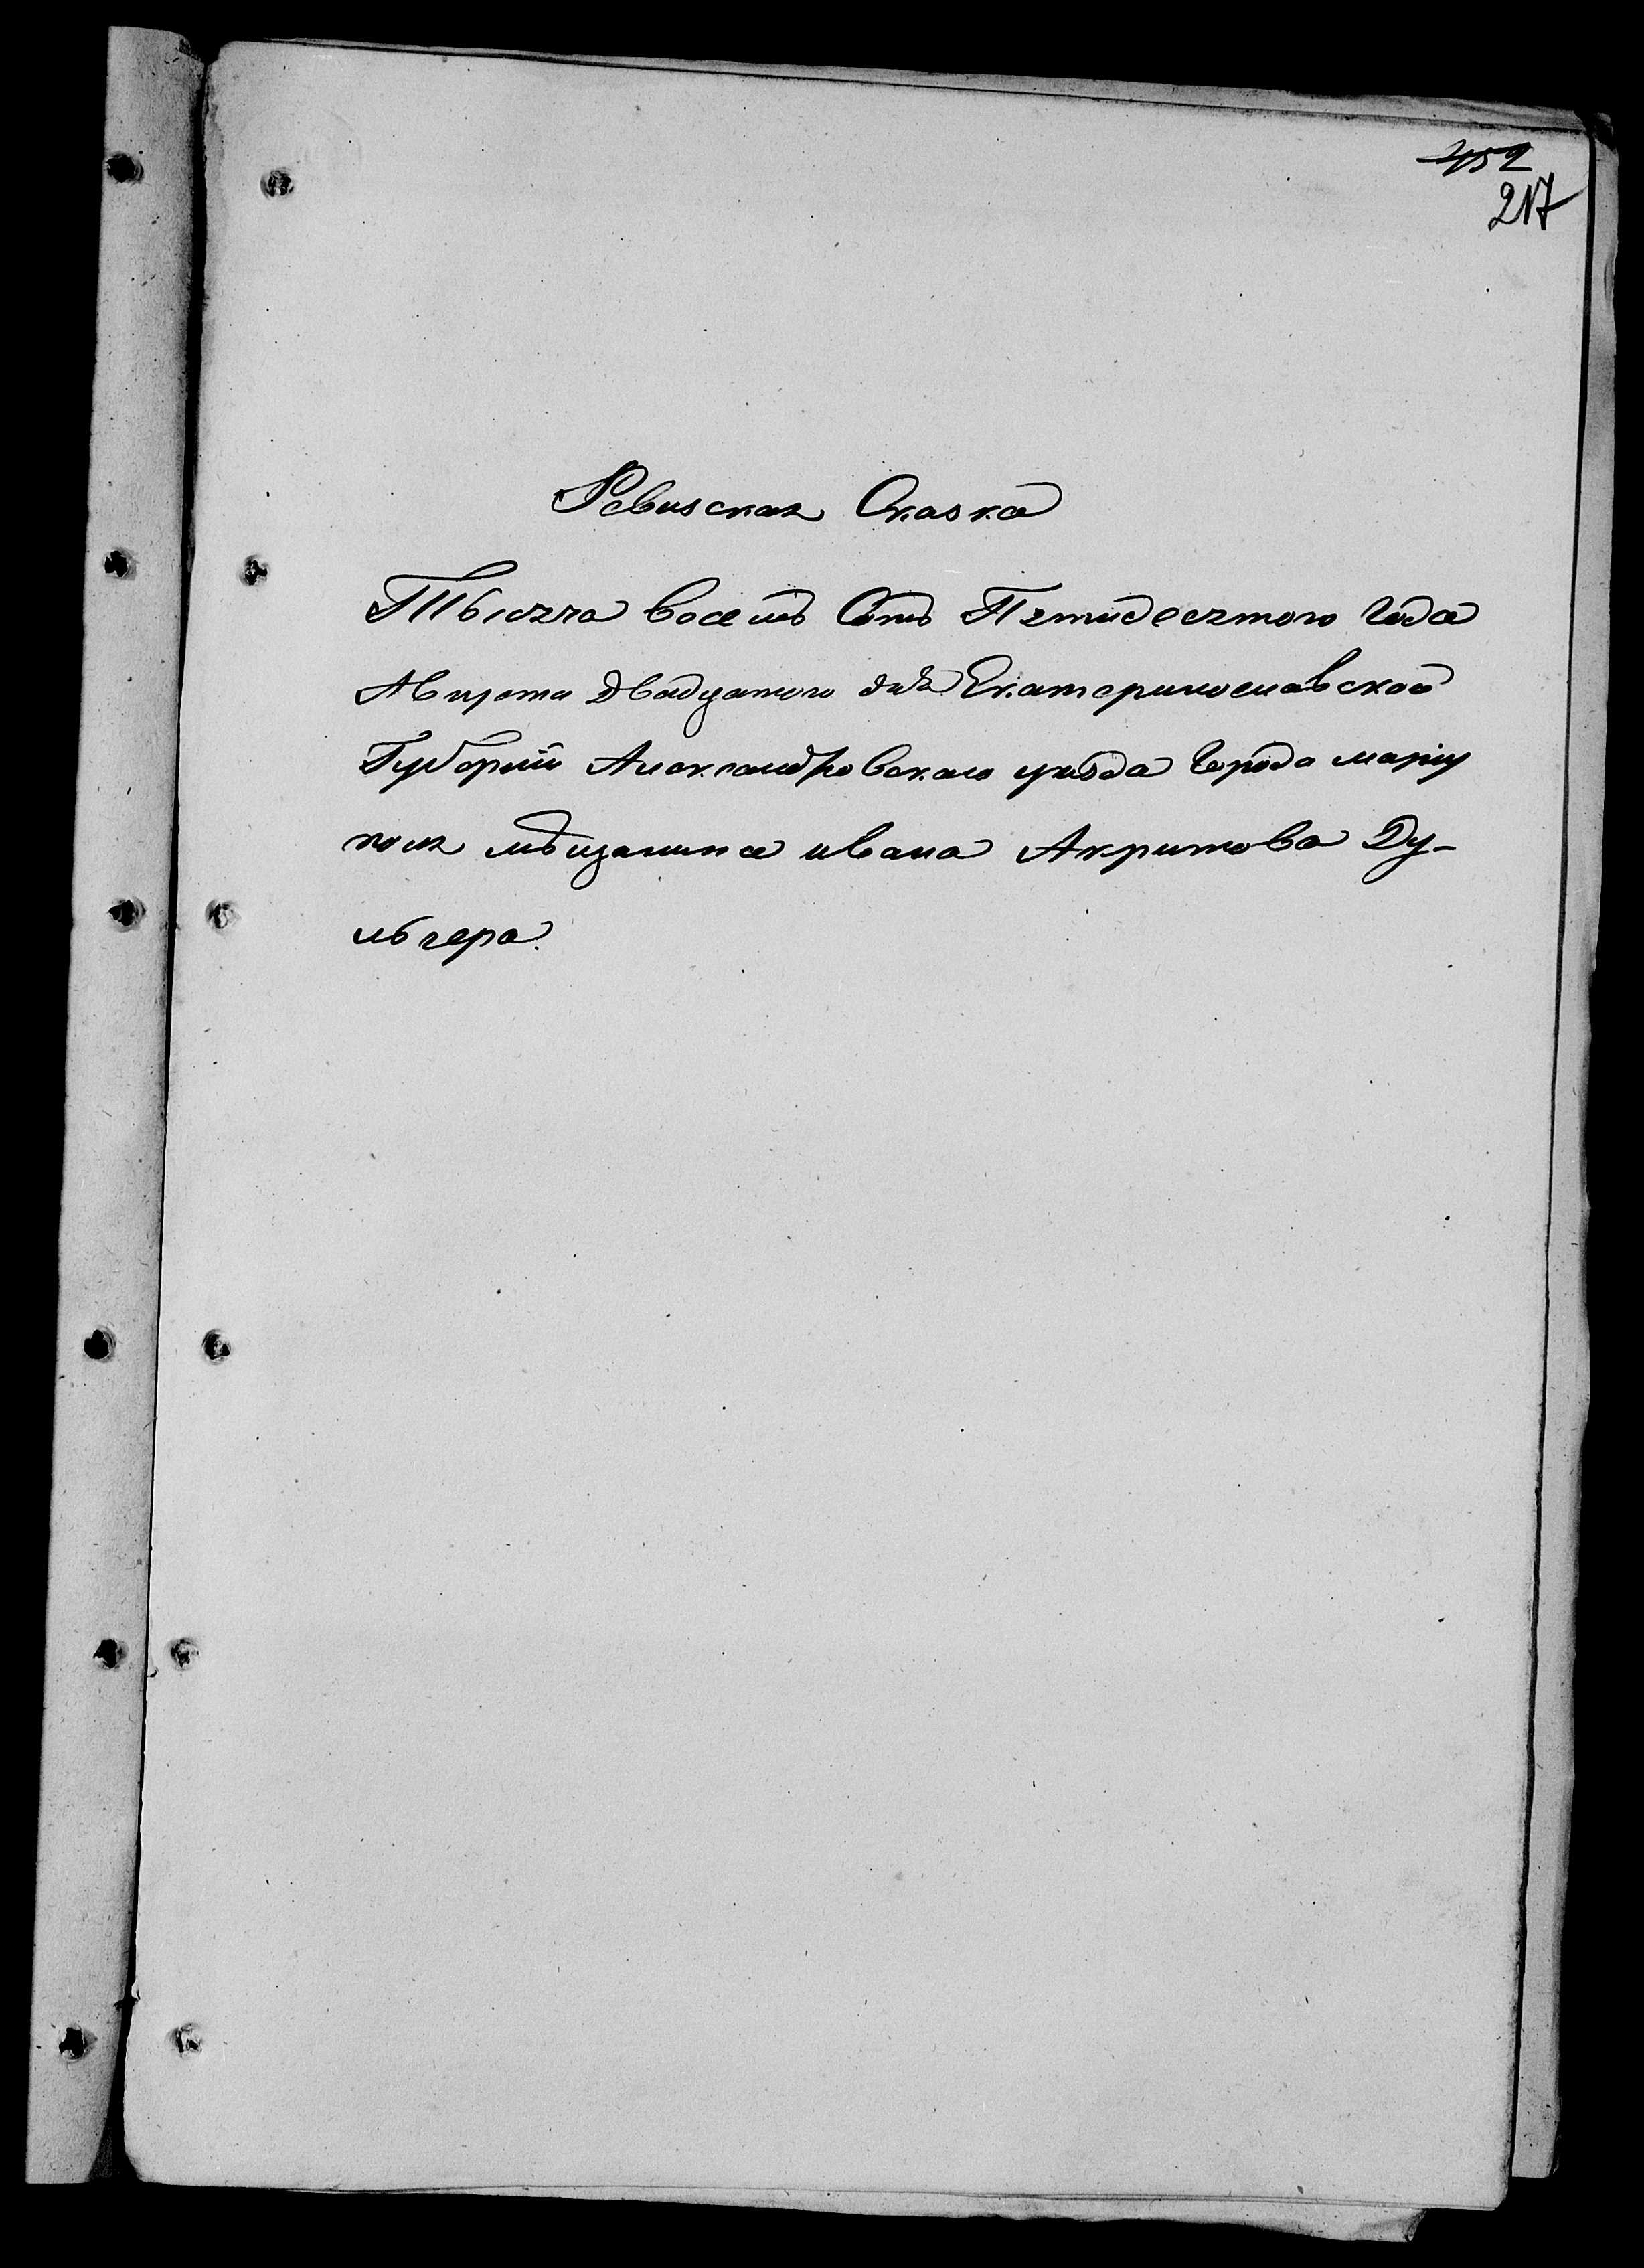 452
217
Ревизская Сказка
Тысяча восемь Сотъ Пятидесятого Года
Августа двадцатого дня Екатеринославской
Губернiи Александровскаго уѣзда Города мариу
поля мѣщанина ивана Акритова Ду-
льгера.